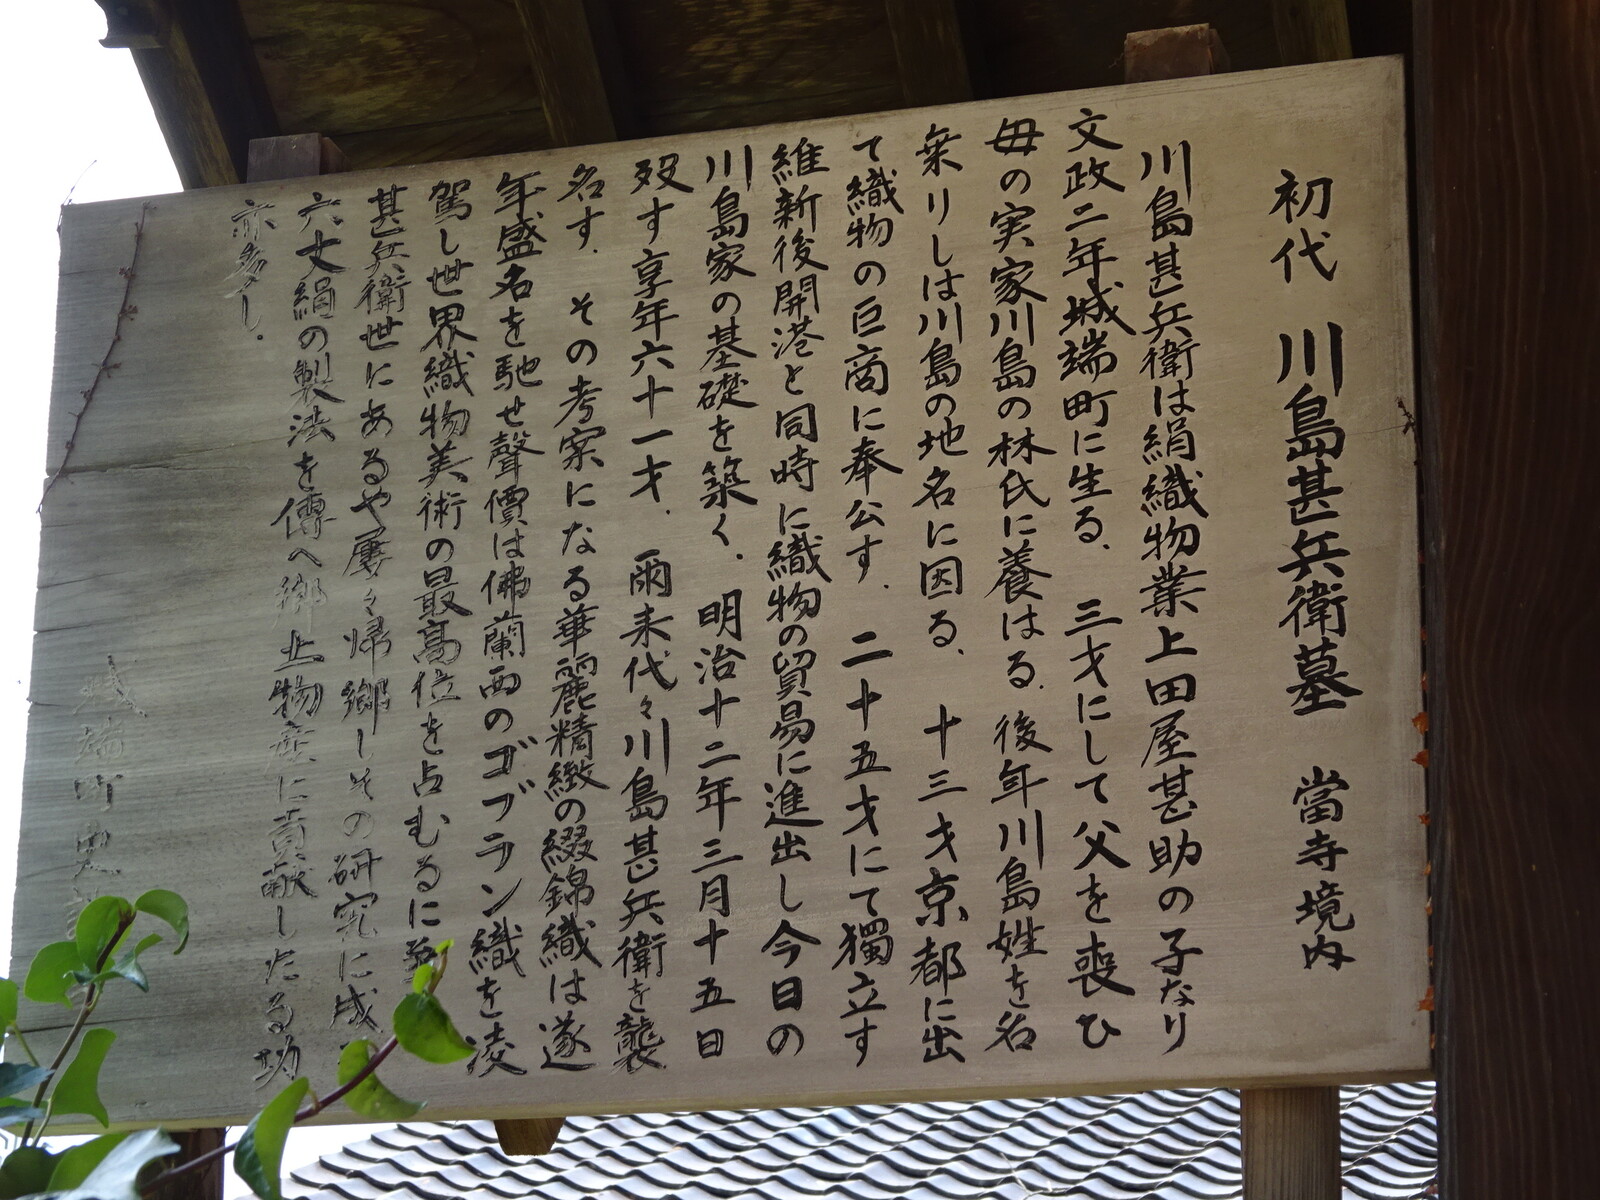 初代 川島甚兵衛墓 當寺境内
川島甚兵衛は絹織物業上田屋甚助の子なり
文政二年城端町に生る、三才にして父を喪ひ
毋の実家川島の林氏に養はる、後年川島姓を名
乗りしは川島の地名に因る、十三才京都に出
て織物の巨商に奉公す、二十五才にて獨立す
維新後開港と同時に織物の貿易に進出し今日の
川島家の基礎を築く、明治十二年三月十五日
歿す享年六十一才、爾来代々川島甚兵衛を襲
名す、その考案になる華麗精緻の綴錦織は遂
年盛名を馳せ聲價は佛蘭西のゴブラン織を凌
駕し世界織物美術の最高位を占むるに至
甚兵衛世にあるや屢々帰郷しその研究に成
六丈絹の製法を傳へ郷土物産に貢献したる功
亦多し、
城端町史